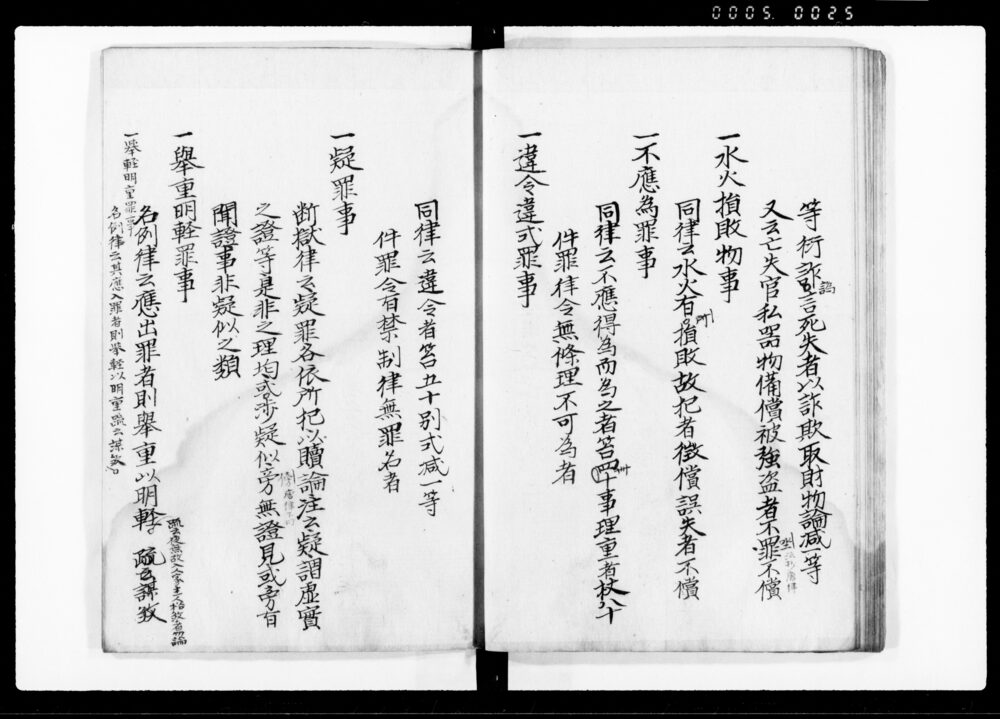 0005. 0025
等衍詐言死失者以詐欺取財物論減一等
謟
又云亡失官私器物備償被強盗者不罪不償
一水火損敗物事
同律云水火有損敗故犯者徴償誤失者不償
一不應為罪事
同律云不應得為而為之者笞四十事理重者杖八十
卌
件罪律令無條理不可為者
一違令違式罪事
同律云違令者笞五十別式减一等
件罪令有禁制律無罪名者
一疑罪事
断獄律云疑罪各依所犯以贖論注云疑謂虚實
之證等是非之理均或渉疑似旁無證見或旁有
聞證事非疑似之類
一舉重明軽罪事
名例律云應出罪者則舉重以明軽。疏云謀殺
一舉軽明重罪事
名例律云其應入罪者則挙軽以明重疏云謀